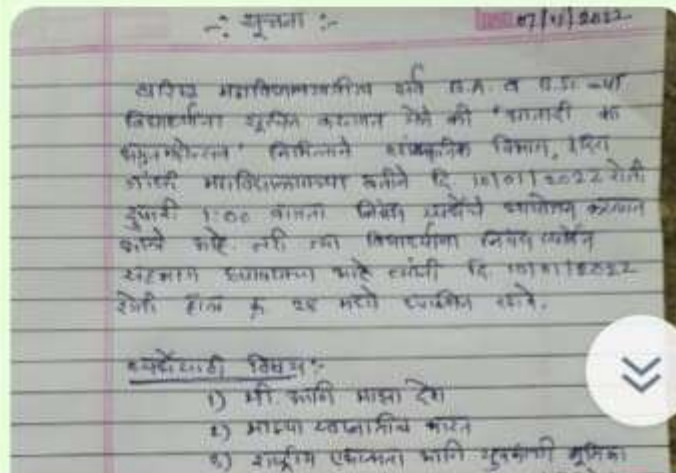 -: सूचना :- 07/01/2022
वरिष्ठ महाविद्यालयातील सर्व B.A. व B.Sc. च्या
विद्यार्थ्यांना सूचित करण्यात येते की "आजादी का
अमृतमहोत्सव" निमित्ताने सांस्कृतिक विभाग, इंदिरा
गांधी महाविद्यालयाच्या वतीने दि 10/01/2022 रोजी
दुपारी 1:00 वाजता निबंध स्पर्धेचे आयोजन करण्यात
आले आहे. तरी ज्या विद्यार्थ्यांना निबंध स्पर्धेत
सहभाग घ्यावयाचा आहे त्यांनी दि 10/01/2022
रोजी हॉल क्र 28 मध्ये उपस्थित रहावे.
स्पर्धेसाठी विषय :-
1) मी आणि माझा देश
2) माझ्या स्वप्नातील भारत
3) राष्ट्रीय एकात्मता आणि युवकांची भूमिका